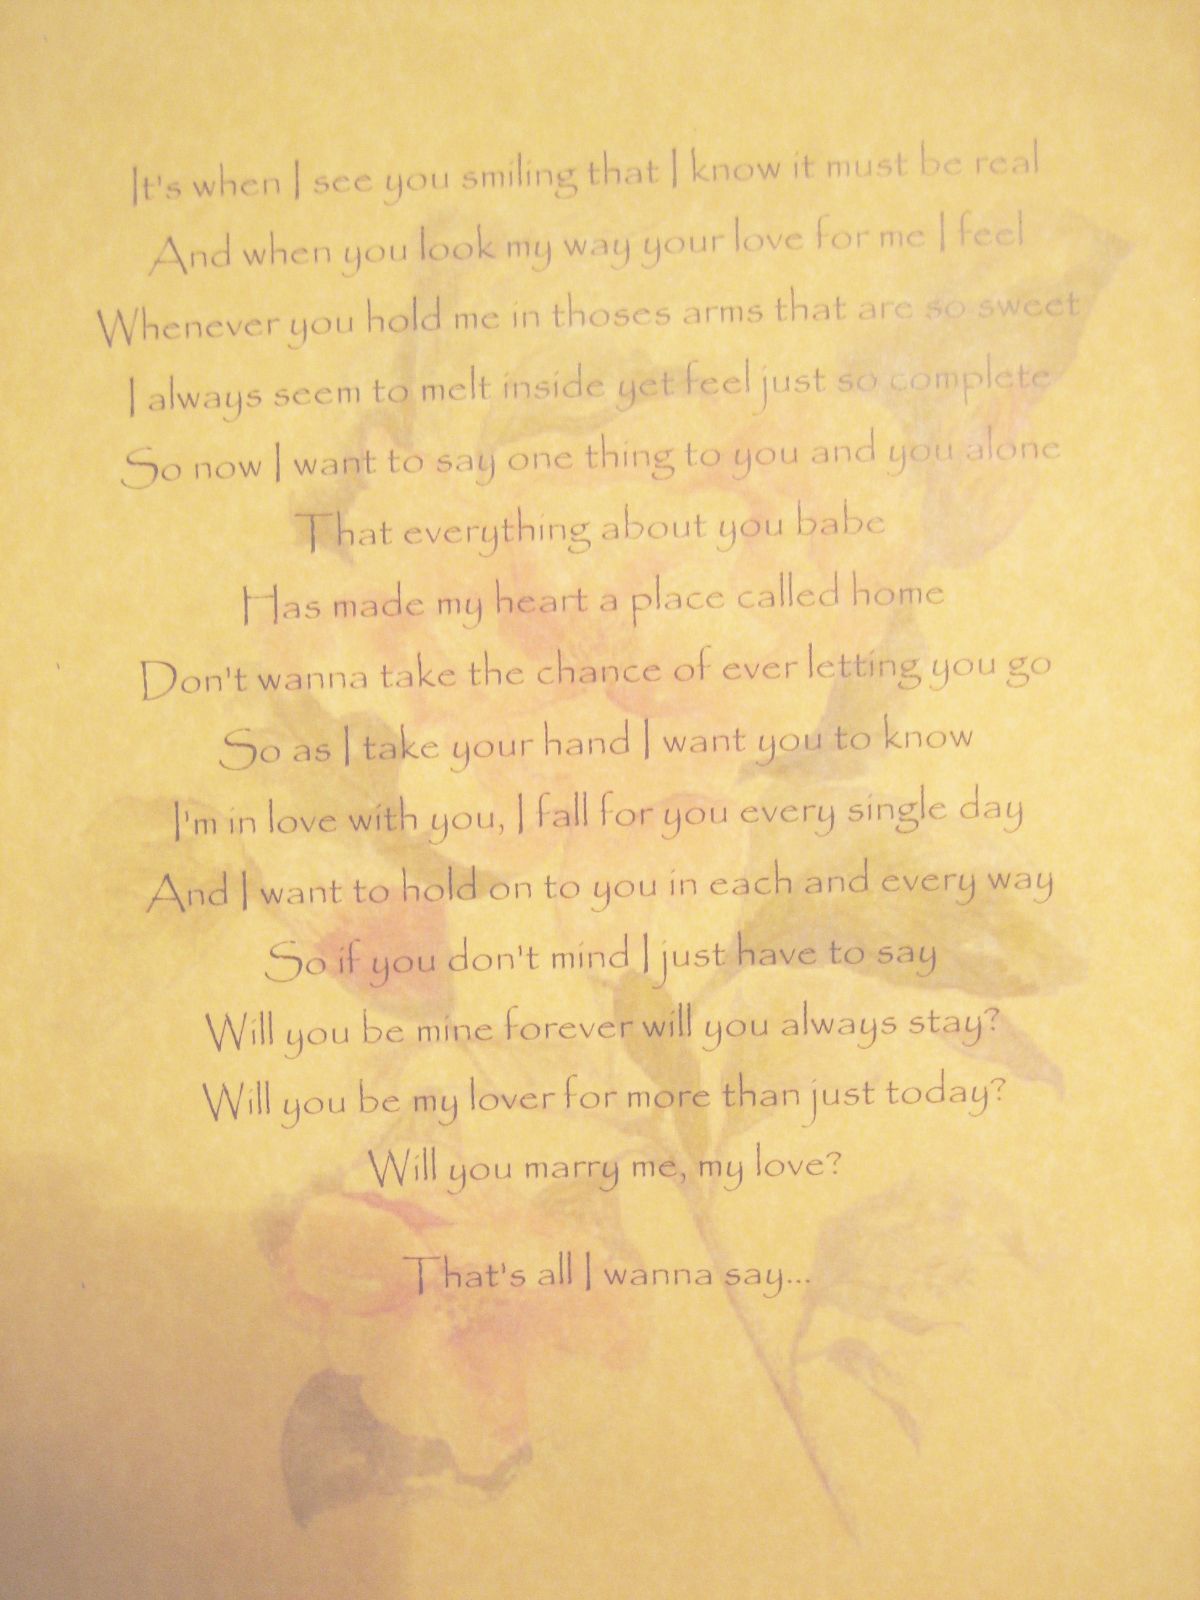 It's when I see you smiling that I know it must be real
And when you look my way your love for me I feel
Whenever you hold me in thoses arms that are so sweet
I always seem to melt inside yet feel just so complete
So now I want to say one thing to you and you alone
That everything about you babe
Has made my heart a place called home
Don't wanna take the chance of ever letting you go
So as I take your hand I want you to know
I'm in love with you, I fall for you every single day
And I want to hold on to you in each and every way
So if you don't mind I just have to say
Will you be mine forever will you always stay?
Will you be my lover for more than just today?
Will you marry me, my love?
That's all I wanna say...